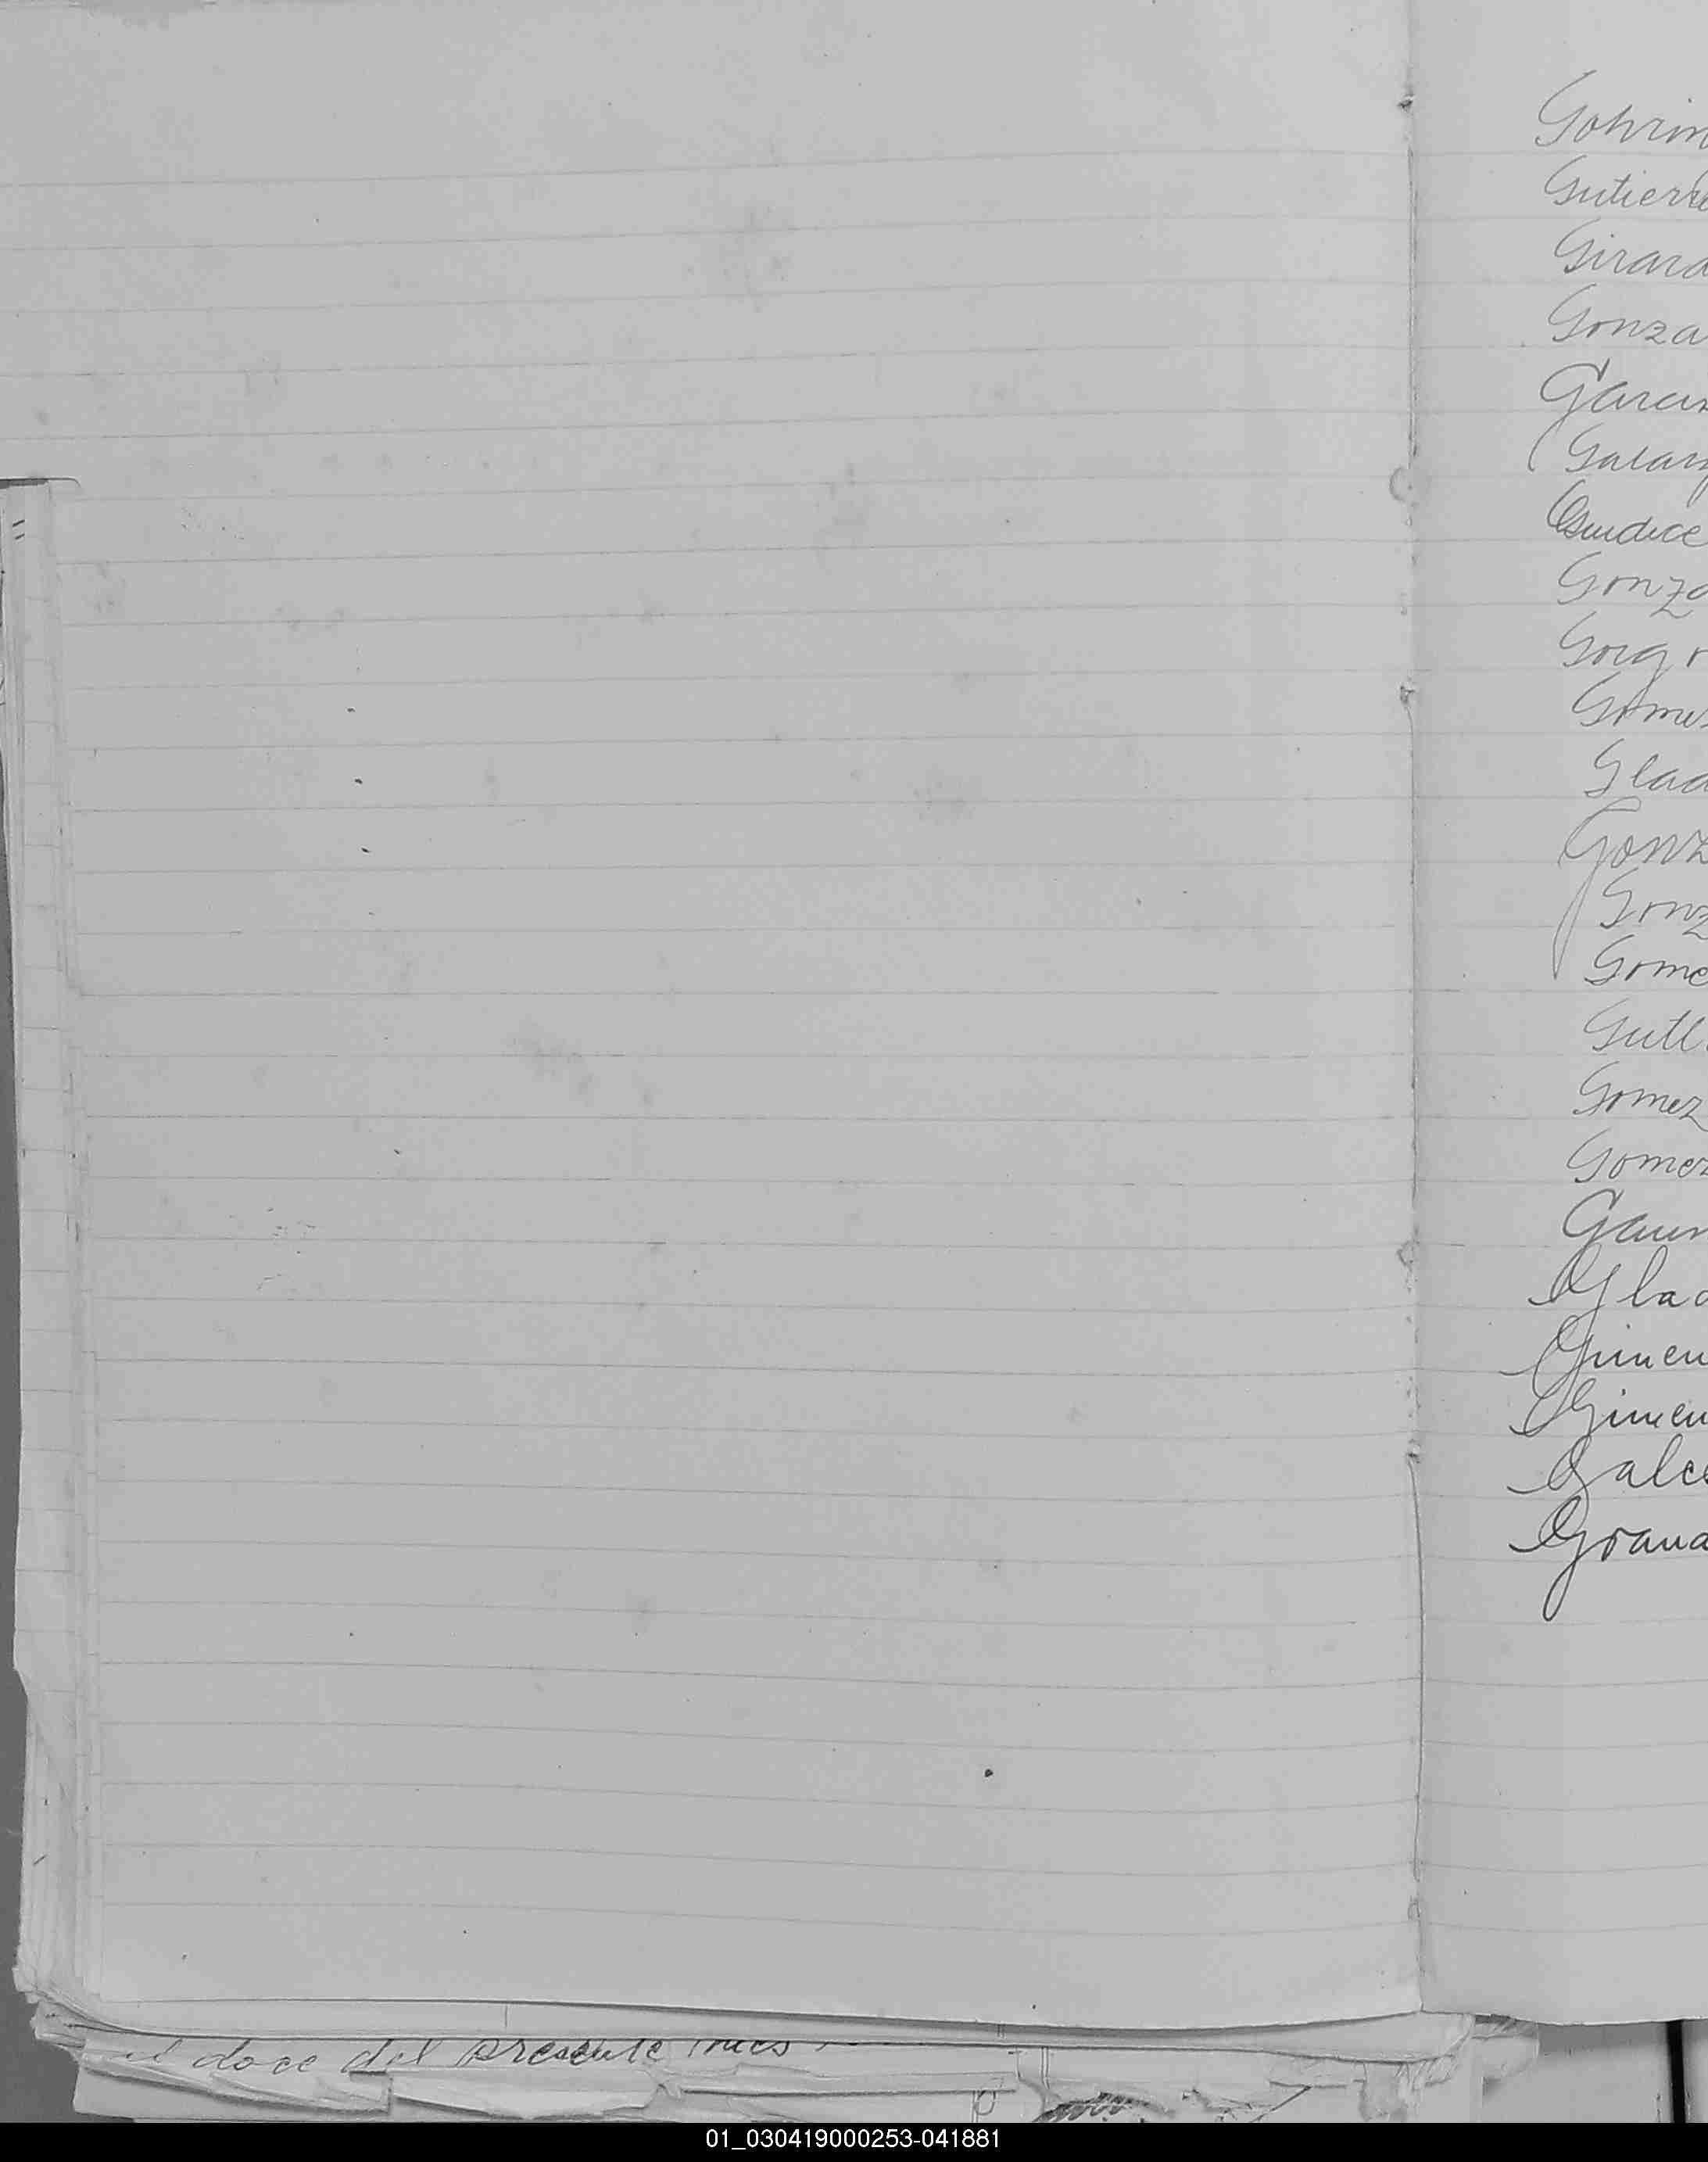 Gohrin
Gutierre
Girard
Gonza
Garcia
Galarz
Guidice
Gonza
Gorgr
Gomes
Glad
Gonz
Gonz
Gome
Gutl
Gomez
Gomez
Gaun
Glad
Gimen
Gimen
Galce
Grana
el doce del presente mes
01_030419000253-041881